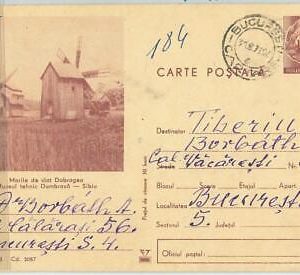 184
BUCUREȘTI
CARTE POȘTALĂ
Morile de vînt Dobrogea
Muzeul tehnic Dumbrava — Sibiu
Destinatar Tiberiu
Borbáth
Cal. Văcărești
Strada
Blocul Scara Etajul Apart.
Localitatea București
Sectorul 5. Județul
Oficiul poștal
Borbath A.
Călărași 56.
București S. 4.
Cd. 2087